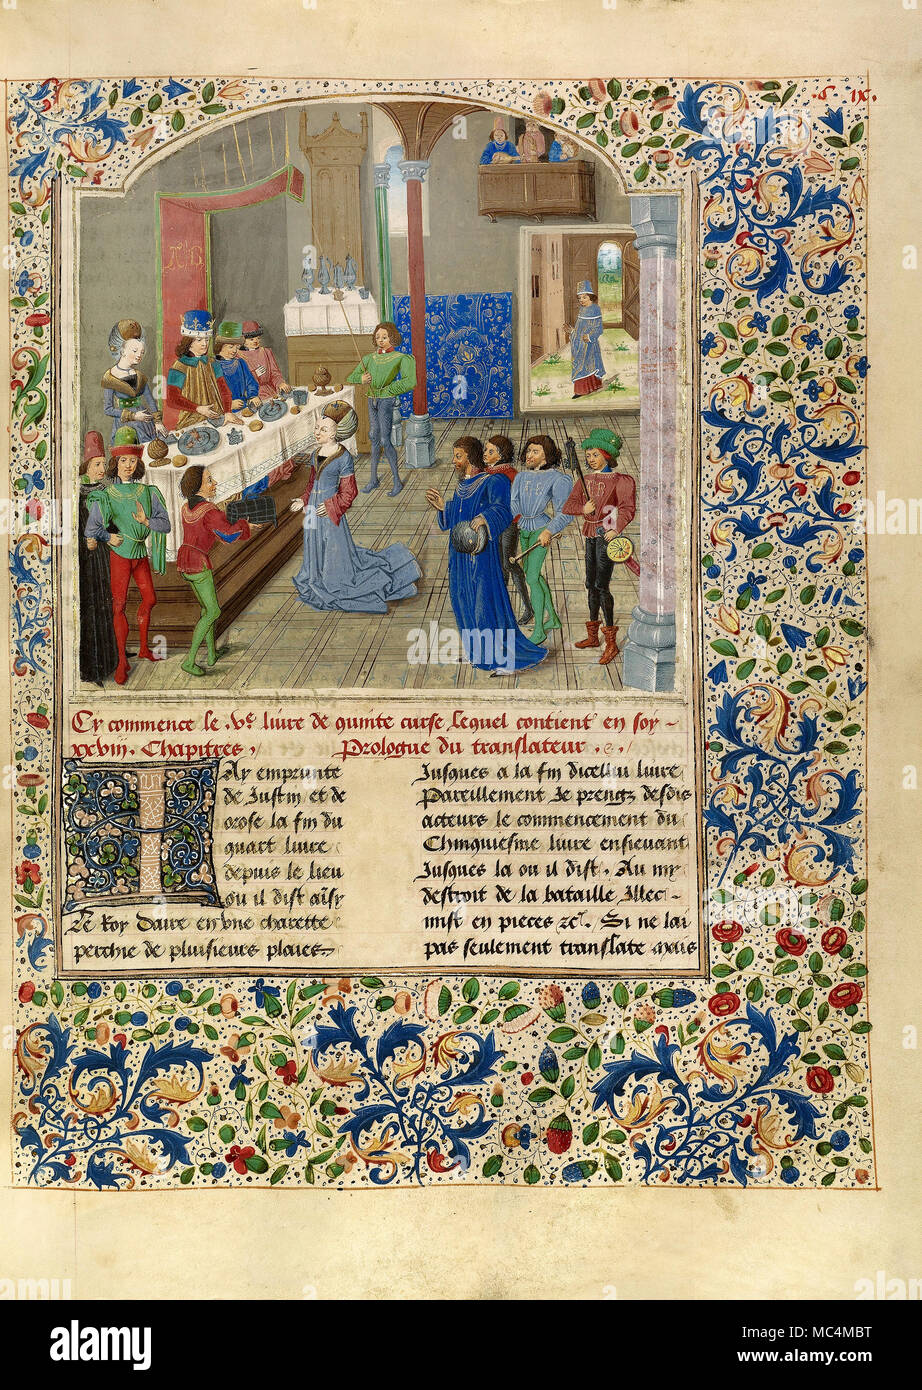 . C IX.
Cy commence le .Ve. livre de quinte curse lequel contient en soy
xxviij. Chapitres. Prologue du translateur. &.
Ay emprunte
de Justin et de
orose la fin du
quart livre
depuis le lieu
ou il dist ainsy
Le Roy daire en une charette
perchie de pluiseurs plaies
Jusques a la fin dicelluy livre
Pareillement Je prengz desdis
acteurs le commencement du
Chinquiesme livre ensievant
Jusques la ou il dist. Au my
destroit de la bataille Illec
mist en pieces &c. Si ne lai
pas seulement translate mais
alamy
alamy
Image ID: MC4MBT
www.alamy.com